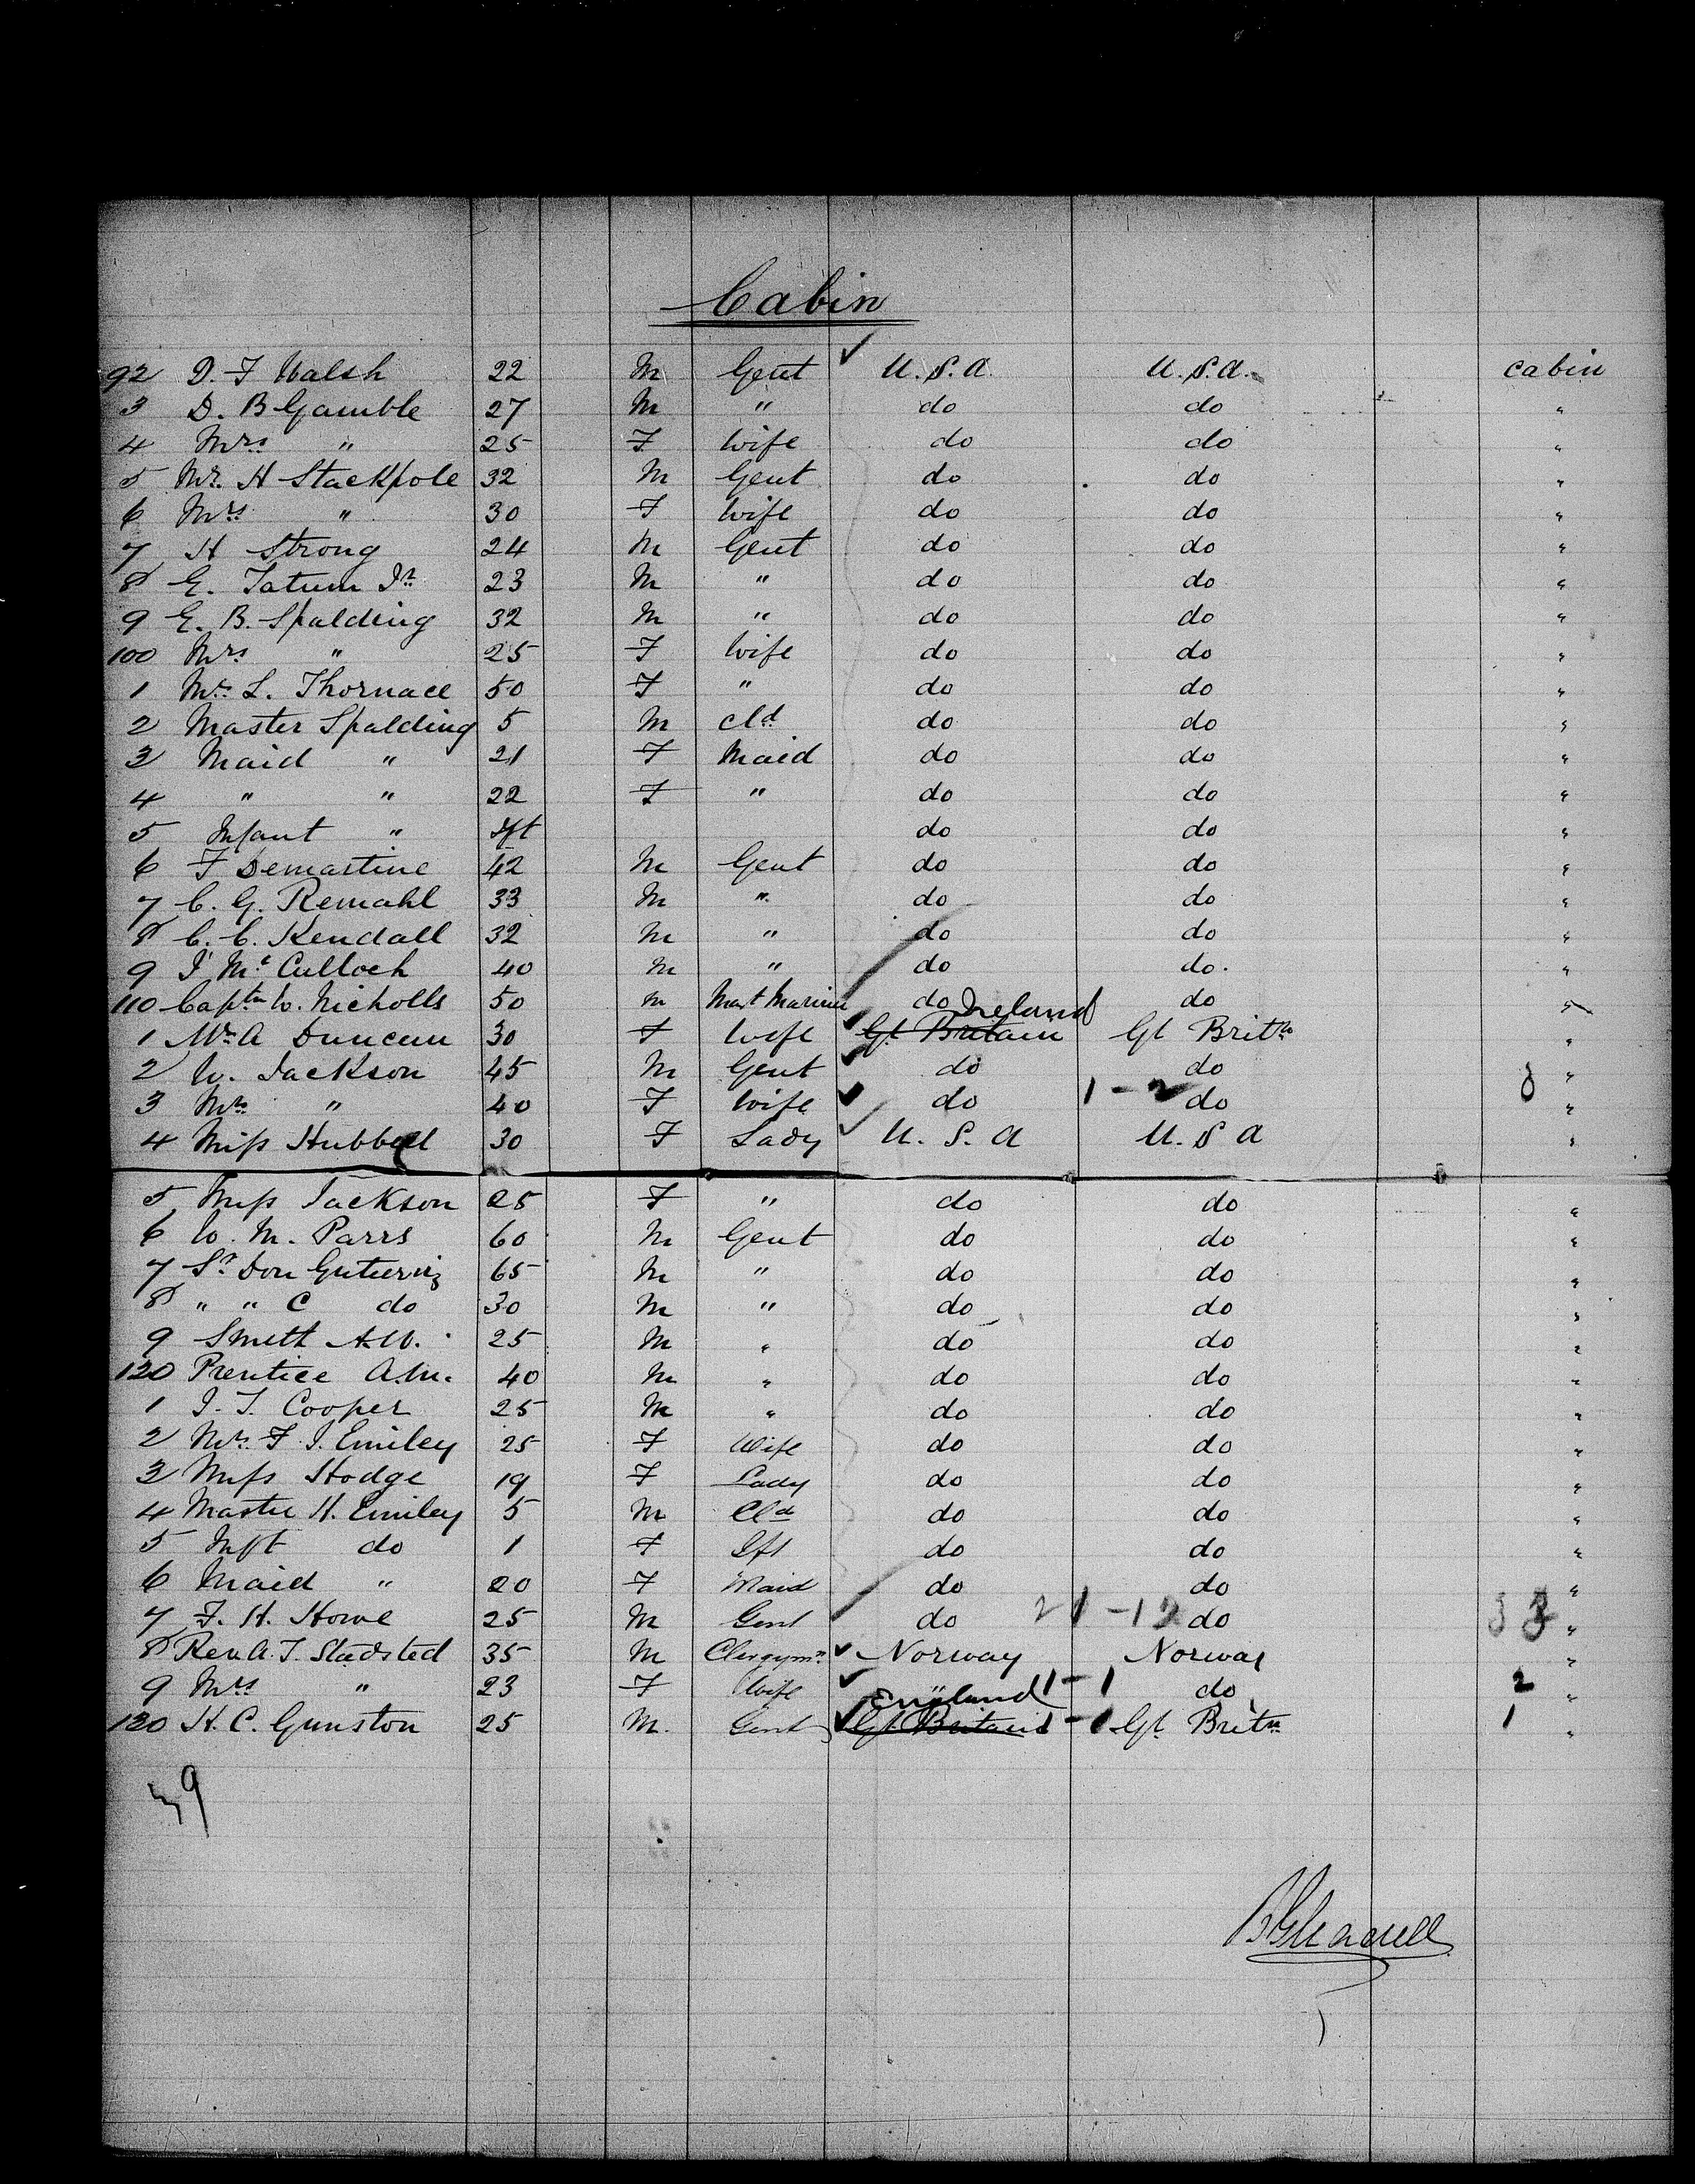 Cabin
92 D. F Walsh 22 M Gent U.S.A. U.S.A. cabin
3 D. B Gamble 27 M " do do "
4 Mrs " 25 F Wife do do "
5 Mr. H Stackpole 32 M Gent do do "
6 Mrs " 30 F Wife do do "
7 H Strong 24 M Gent do do "
8 E. Tatum Jr 23 M " do do "
9 E. B. Spalding 32 M " do do "
100 Mrs " 25 F Wife do do "
1 Mrs L. Thornace 50 F " do do "
2 Master Spalding 5 M Cld do do "
3 Maid " 21 F Maid do do "
4 " " 22 F " do do "
5 Infant " Ift do do "
6 F Demartine 42 M Gent do do "
7 C. G. Remahl 33 M " do do "
8 C. C. Kendall 32 M " do do "
9 J Mc Culloch 40 M " do do. "
110 Captn W. Nicholls 50 M Mast Mariner do do "
Ireland
1 Mrs A Duncan 30 F Wife Gt Britain Gt Britn "
2 W. Jackson 45 M Gent do do "
3 Mrs " 40 F Wife do 1-2 do "
4 Miss Hubbell 30 F Lady U. S. A U. S A "
5 Miss Jackson 25 F " do do "
6 W. M. Parrs 60 M Gent do do "
7 Sr Don Gutierriz 65 M " do do "
8 " " C do 30 M " do do "
9 Smith A.W. 25 M " do do "
120 Prentice A.M. 40 M " do do "
1 J. T. Cooper 25 M " do do "
2 Mrs F. J. Emiley 25 F Wife do do "
3 Miss Hodge 19 F Lady do do "
4 Master H. Emiley 5 M Cld do do "
5 Inft do 1 F Ift do do "
6 Maid " 20 F Maid do do "
7 F. H. Howe 25 M Gent do 21-12 do "
8 Rev. A. T. Stadsted 35 M Clergymn Norway Norway "
9 Mrs " 23 F Wife " 1-1 do 2 "
England
130 H. C. Gunston 25 M. Gent Gt Britain 1-1 Gt Britn 1 "
39